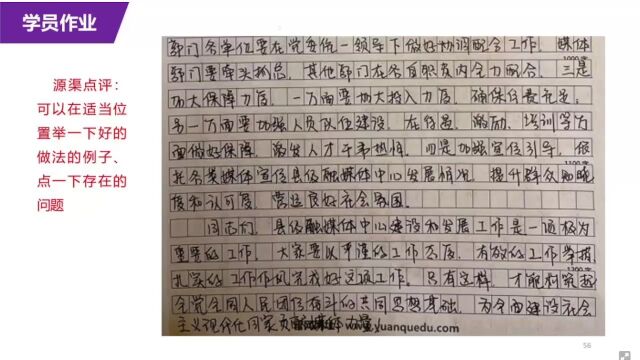 学员作业
源渠点评：
可以在适当位
置举一下好的
做法的例子、
点一下存在的
问题
部门各单位要在党委统一领导下做好协调配合工作，媒体
部门要牵头抓总，其他部门在各自职责内全力配合。三是
加大保障力度。一方面要加大投入力度，确保经费充足。
另一方面要加强人员队伍建设，在待遇、激励、培训等方
面做好保障，激发人才干事热情。四是加强宣传引导。依
托各类媒体宣传县级融媒体中心发展情况，提升群众知晓
度和认可度，营造良好社会氛围。
同志们，县级融媒体中心建设和发展工作是一项极为
重要的工作，大家要以严谨的工作态度，有效的工作举措，
扎实的工作作风完成好这项工作。只有这样，才能构筑起
全党全国人民团结奋斗的共同思想基础，为全面建设社会
主义现代化国家贡献媒体力量。
www.yuanquedu.com
1000字
1100字
1200字
56